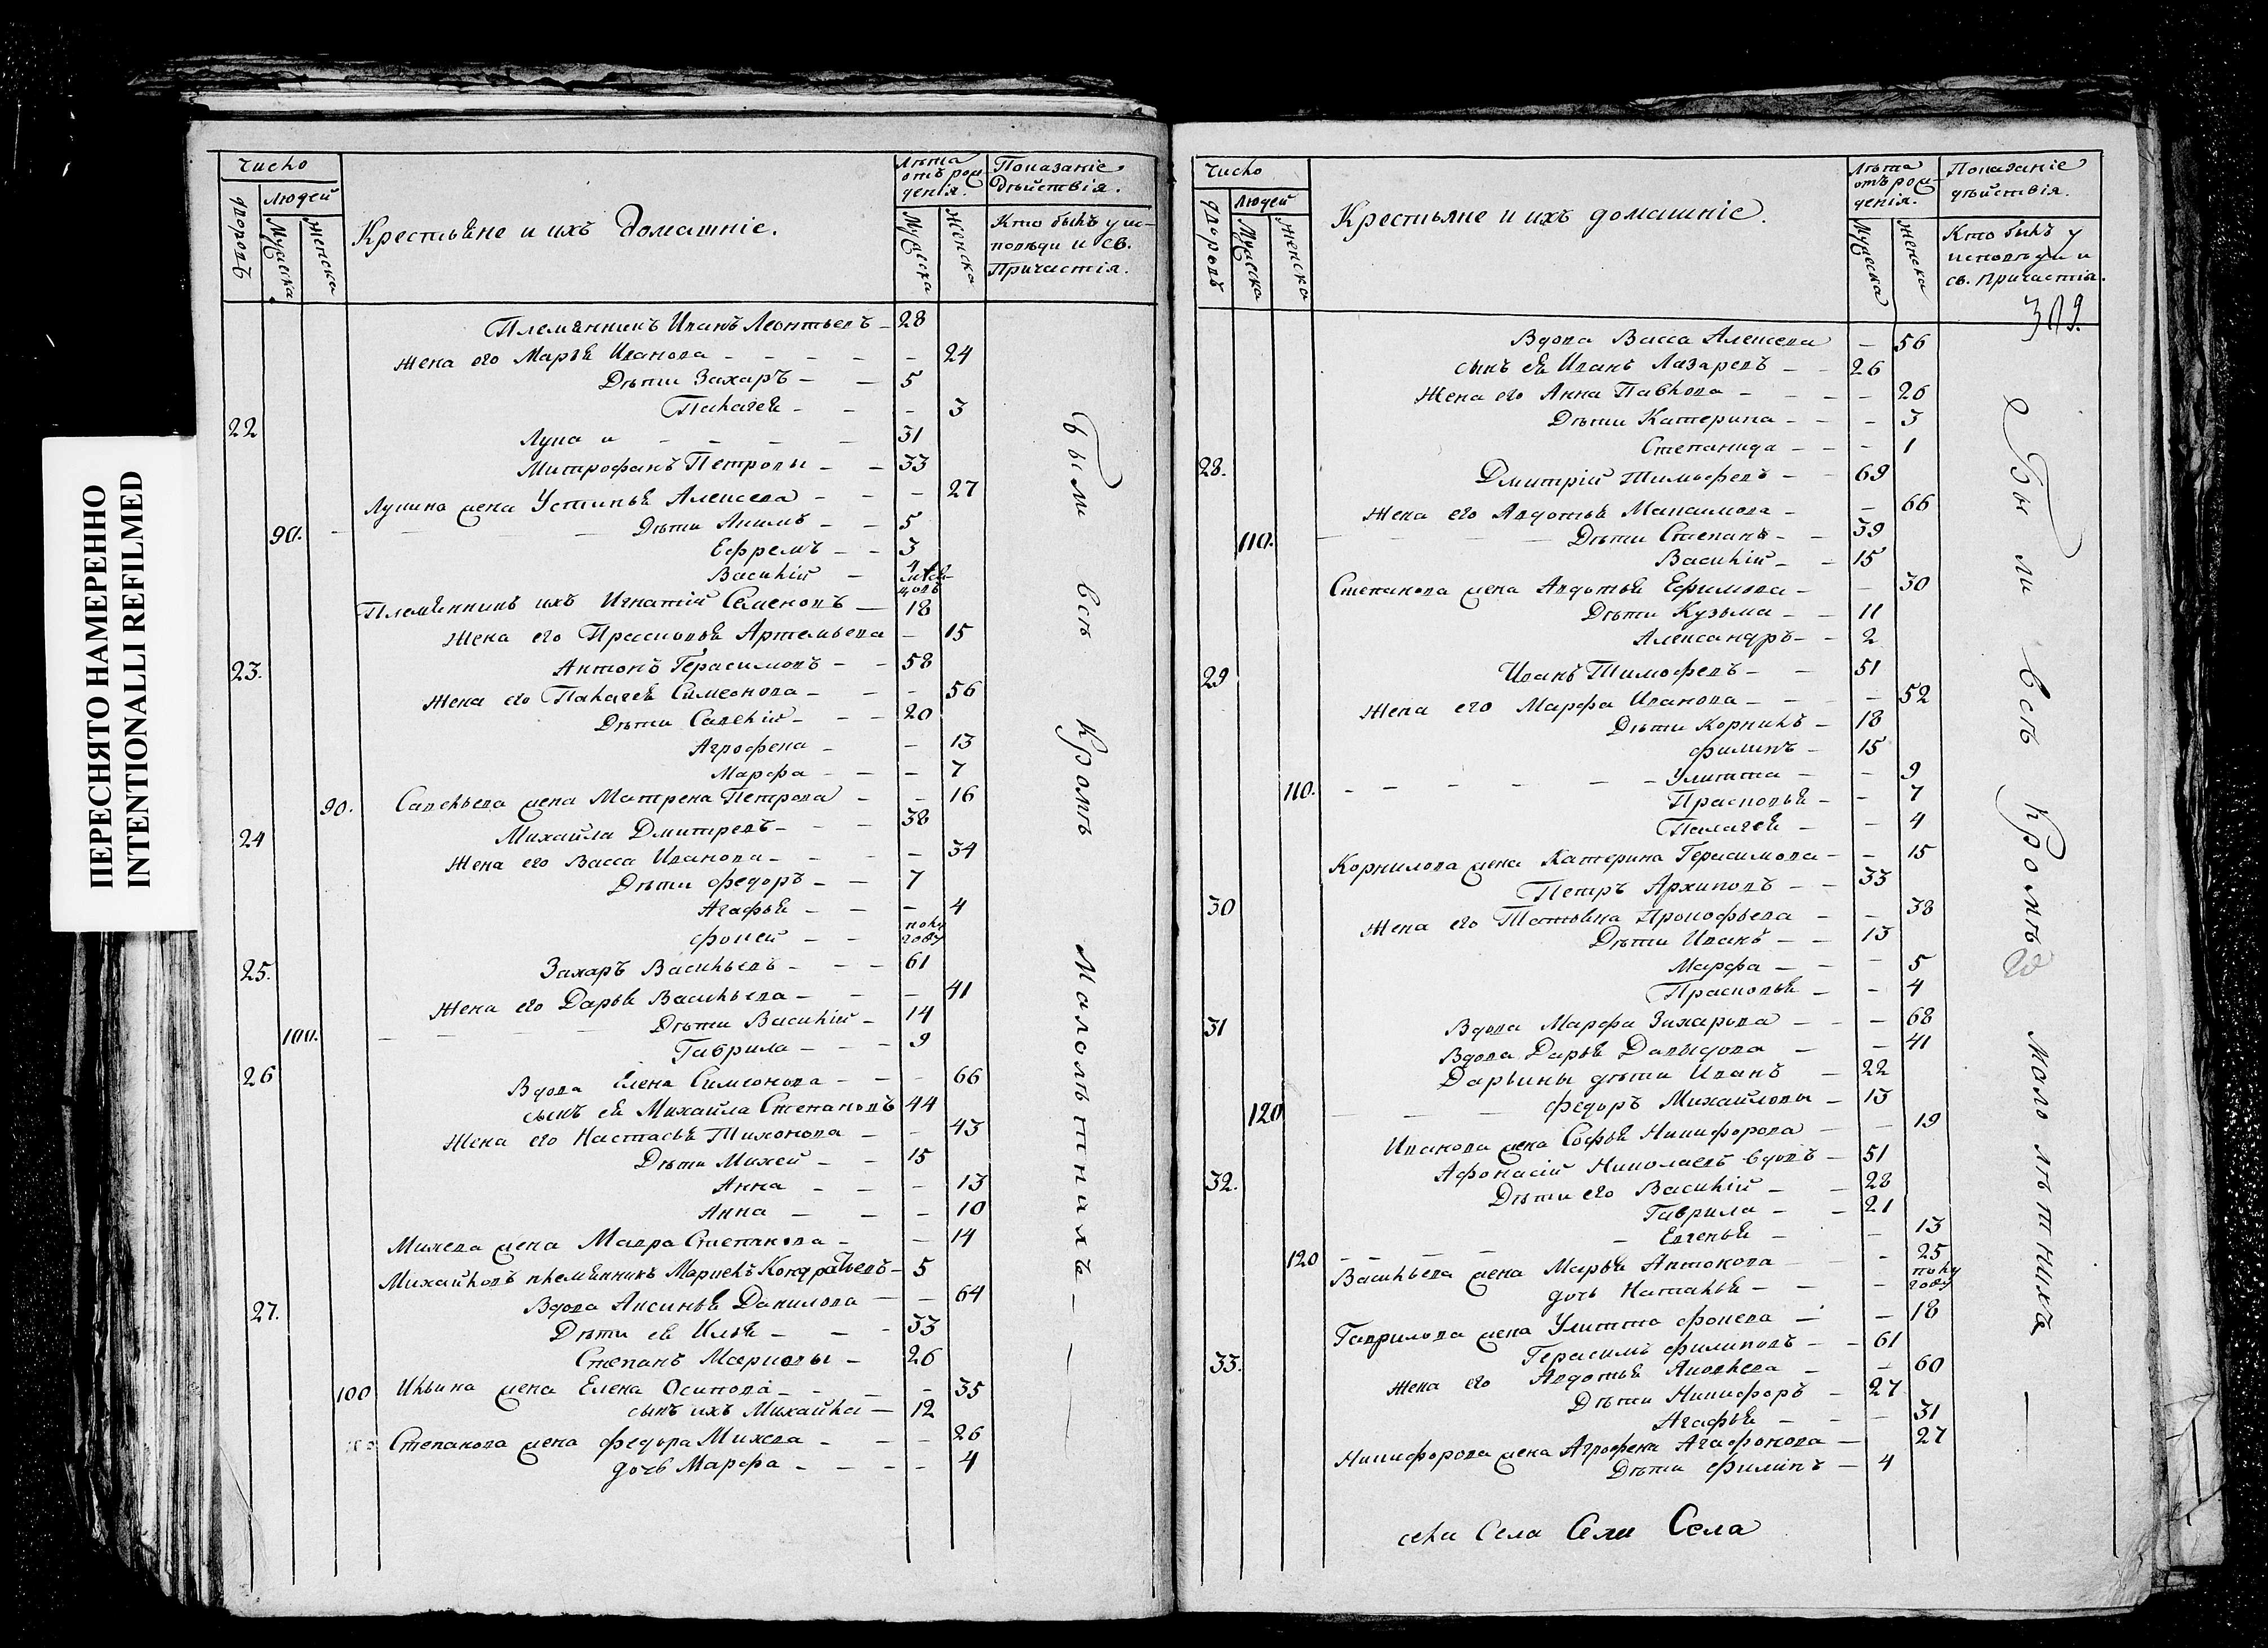 ПЕРЕСНЯТО НАМЕРЕННО
INTENTIONALLI REFILMED
Число
дворовъ
Людей
Мужеска
Женска
Крестьяне и ихъ домашніе.
Лѣта отъ рож-
денія.
Мужеска
Женска
Показаніе
Дѣйствія.
Кто былъ у ис-
повѣди и св.
Причастія.
Племянникъ Иванъ Леонтьевъ - 28
Жена его Марья Иванова - - - - - 24
Дѣти Захаръ - - 5
Палагея - - - 3
22 Лупа и - - - - 31
Митрофанъ Петровы - - 33
Лупина жена Устинья Алексева - - - 27
90. - - - Дѣти Акимъ - - 5
Ефремъ - - 3
Василій -
Племянникъ ихъ Игнатій Семеновъ - 18
Жена его Прасковья Артемьева - 15
23. Антонъ Герасимовъ - - 58
Жена его Палагея Симеонова - - - 56
Дѣти Савелій - - - 20
Агрофена - - 13
Марфа - - - 7
90. Савельева жена Матрена Петрова - - 16
24 Михайла Дмитревъ - - - 38
Жена его Васса Иванова - - - - 34
Дѣти Федоръ - - 7
Агафья - - - 4
Фокей - - полу году
25. Захаръ Васильевъ - - - 61
Жена его Дарья Васильева - - - 41
100. - - - - Дѣти Василій - 14
Гаврила - - - 9
26 Вдова Елена Симеонова - - - 66
сынъ ея Михайла Степановъ 44
Жена его Настасья Тихонова - - 43
Дѣти Михей - - 15
Анна - - - 13
Анна - - - 10
Михева жена Мавра Степанова - - 14
Михайловъ племянникъ Маркелъ Кондратьевъ - 5
27. Вдова Аксинья Данилова - - 64
Дѣти ея Илья - - - 33
Степанъ Марковы - 26
100 Ильина жена Елена Осипова - - - - 35
сынъ ихъ Михайла - 12
Степанова жена Федора Михева - - - 26
дочь Марфа - - - - 4
Были всѣ Кромѣ Малолѣтныхъ -
Число
дворовъ
Людей
Мужеска
Женска
Крестьяне и ихъ домашніе.
Лѣта
отъ рож-
денія.
Мужеска
Женска
Показаніе
дѣйствія.
Кто былъ у
исповѣди и
св. причастія.
309.
Вдова Васса Алексева - 56
сынъ ея Иванъ Лазаревъ - - 26
Жена его Анна Павлова - - - - 26
Дѣти Катерина - - - 3
Степанида - - - 1
28. Дмитрій Тимофевъ - - 69
Жена его Авдотья Максимова - - 66
110. - - - Дѣти Степанъ - - 39
Василій - - 15
Степанова жена Авдотья Ефимова - - 30
Дѣти Кузьма - - 11
Александръ - - 2
29 Иванъ Тимофевъ - - 51
Жена его Марфа Иванова - - - - 52
Дѣти Корнилъ - 18
Филипъ - 15
Улитта - - 9
110. - - - - - - Прасковья - - 7
Пелагея - - 4
Корнилова жена Катерина Герасимова - - 15
30 Петръ Архиповъ - - 33
Жена его Татьяна Прокофьева - - 38
Дѣти Иванъ - - 13
Марфа - - - 5
Прасковья - - 4
31 Вдова Марфа Захарова - - - 68
Вдова Дарья Давыдова - - 41
Дарьины дѣти Иванъ - 22
120 - - - Федоръ Михайловы - 13
Иванова жена Софья Никифорова - - 19
32. Афонасій Николаевъ вдовъ - 51
Дѣти его Василій - - 28
Гаврила - - 21
Евгенья - - 13
120 - - - - Васильева жена Марья Антонова - - 25
дочь Наталья - - - полу году
Гаврилова жена Улитта Фокева - - 18
33. Герасимъ Филиповъ - - 61
Жена его Авдотья Яковлева - - 60
Дѣти Никифоръ - 27
Агафья - - - 31
Никифорова жена Агрофена Агафонова - 27
Дѣти Филипъ - 4
Были всѣ кромѣ Малолѣтнихъ -
сели Села Сели Села